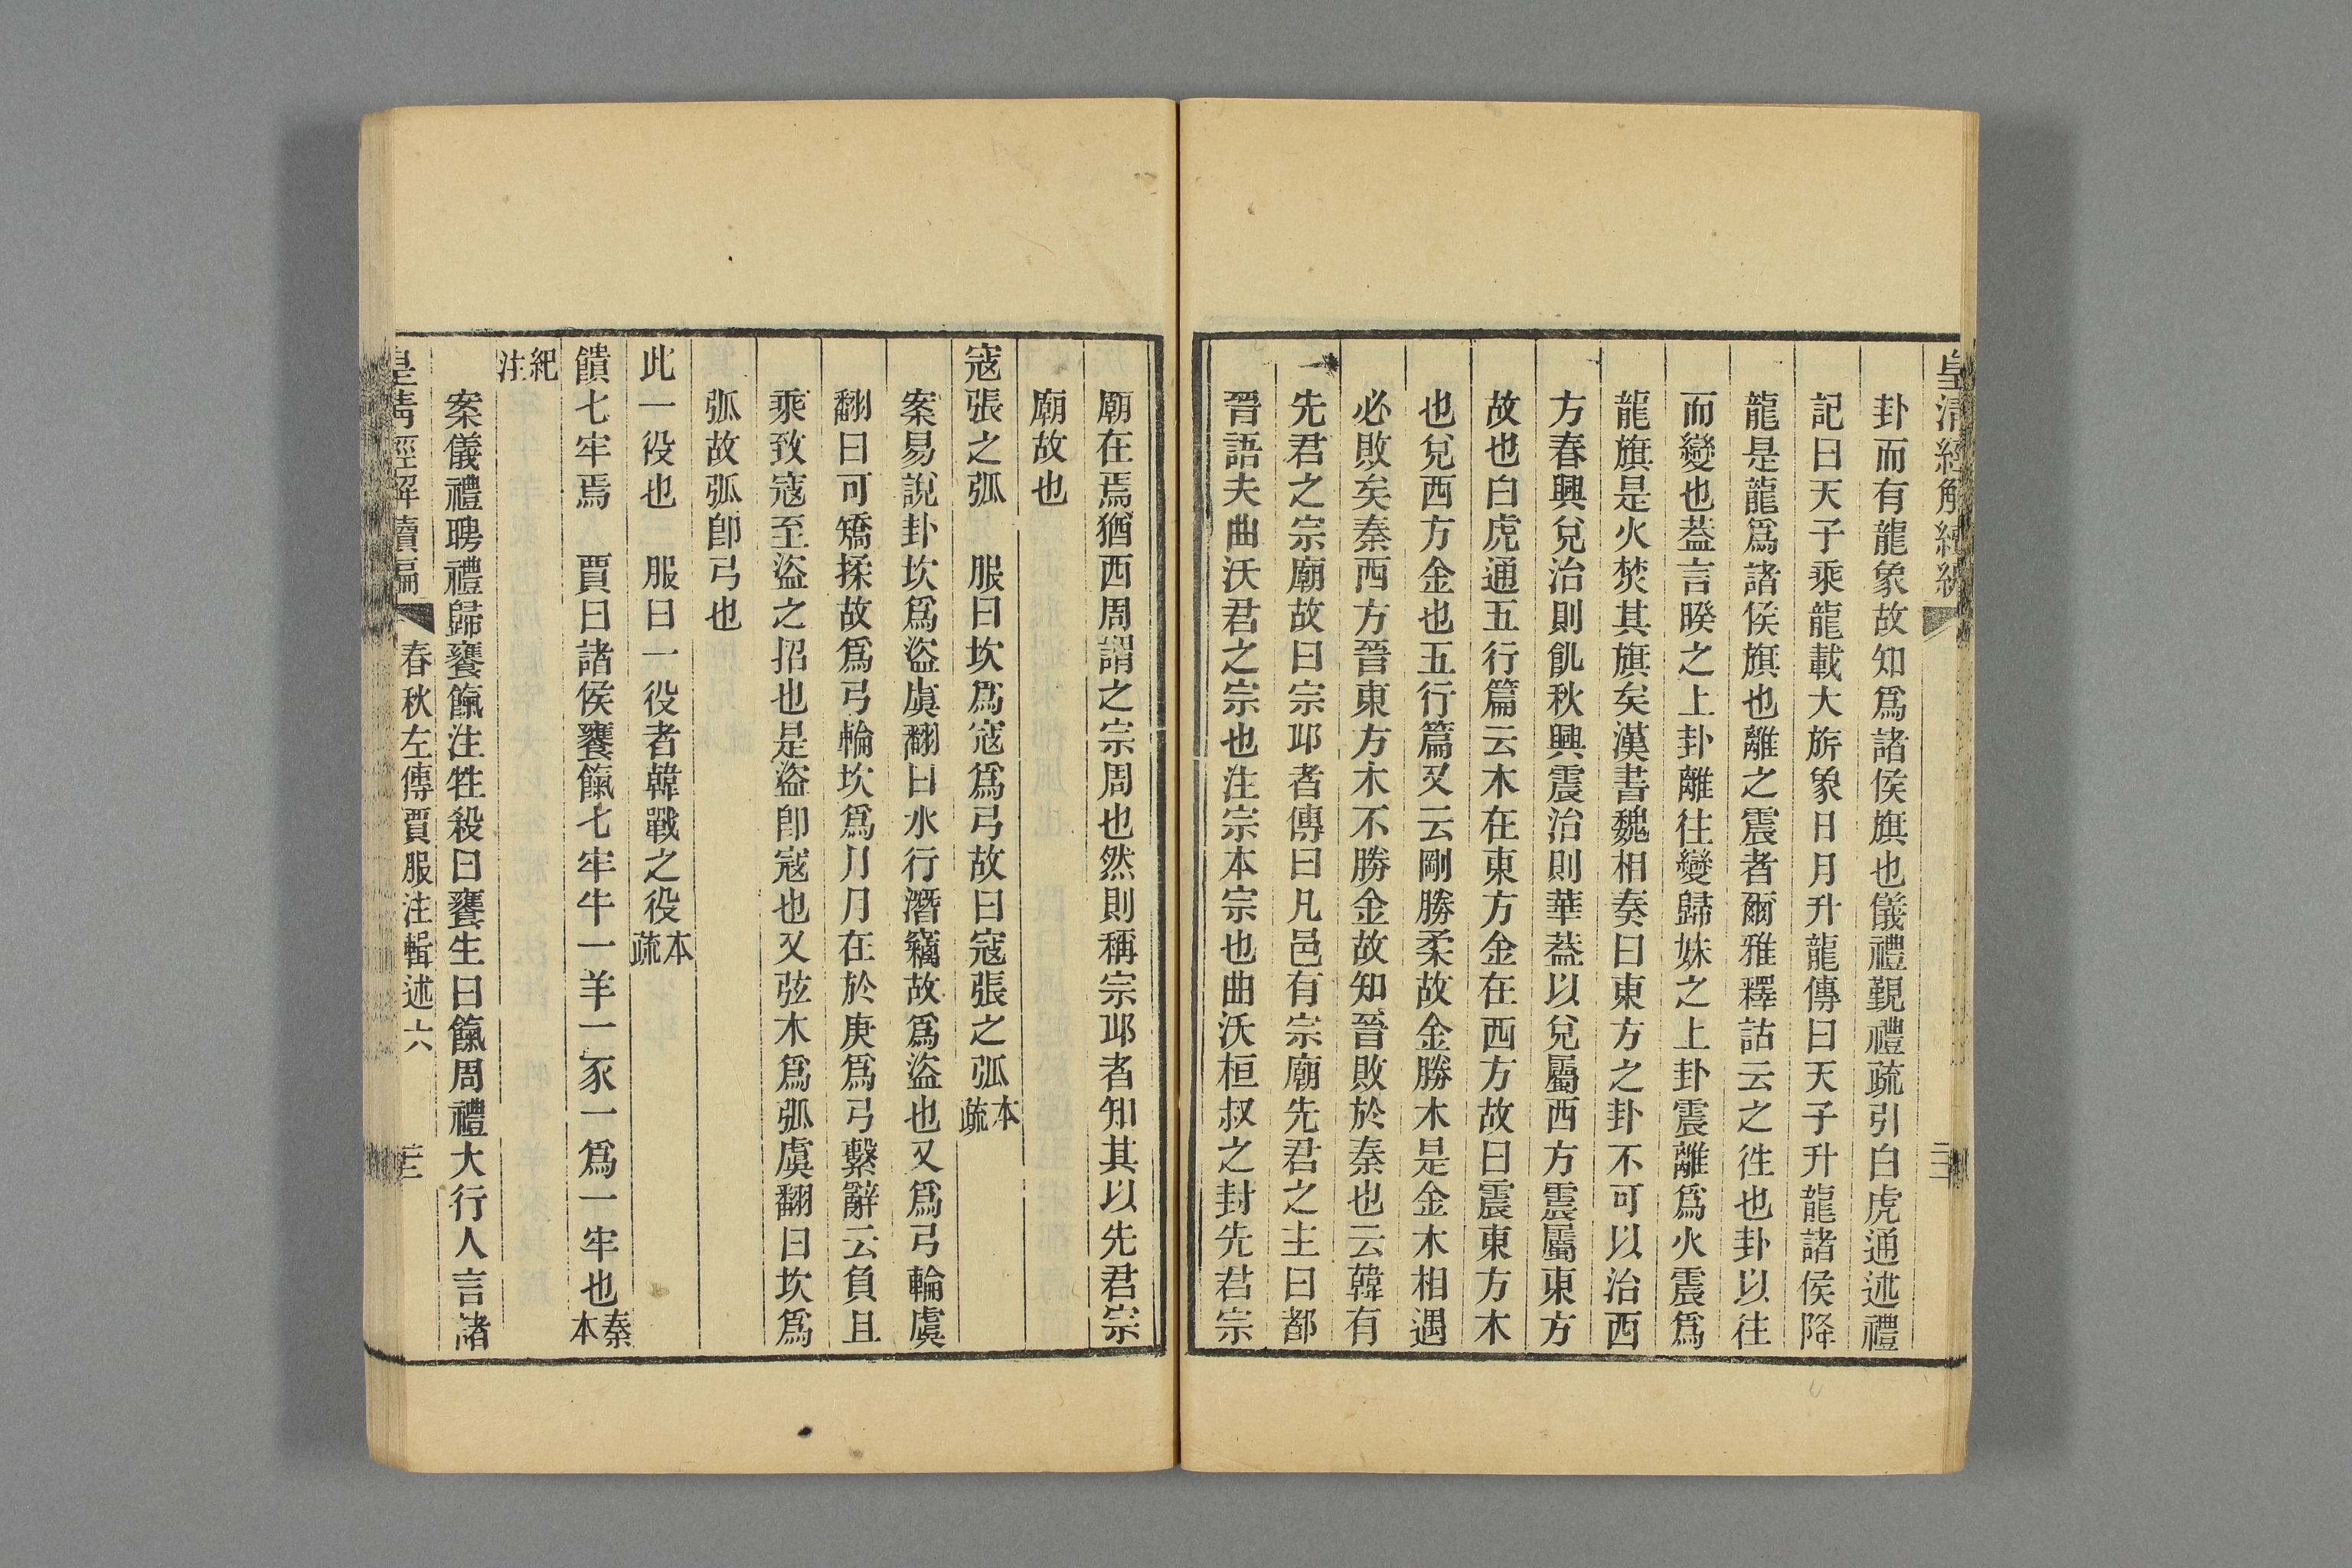 皇清經解續
卦而有龍象故知爲諸侯旗也儀禮覲禮疏引白虎通述禮
記曰天子乘龍載大旂象日月升龍傳曰天子升龍諸侯降
龍是龍爲諸侯旗也離之震者爾雅釋詁云之往也卦以往
而變也葢言睽之上卦離往變歸妹之上卦震離爲火震爲
龍旗是火焚其旗矣漢書魏相奏曰東方之卦不可以治西
方春興兌治則飢秋興震治則華葢以兌屬西方震屬東方
故也白虎通五行篇云木在東方金在西方故曰震東方木
也兌西方金也五行篇又云剛勝柔故金勝木是金木相遇
必敗矣秦西方晉東方木不勝金故知晉敗於秦也云韓有
先君之宗廟故曰宗邱者傳曰凡邑有宗廟先君之主曰都
晉語夫曲沃君之宗也注宗本宗也曲沃桓叔之封先君宗
廟在焉猶西周謂之宗周也然則稱宗邱者知其以先君宗
廟故也
寇張之弧　服曰坎爲寇爲弓故曰寇張之弧本疏
案易說卦坎爲盜虞翻曰水行潛竊故爲盜也又爲弓輪虞
翻曰可矯揉故爲弓輪坎爲月月在於庚爲弓繫辭云負且
乘致寇至盜之招也是盜卽寇也又弦木爲弧虞翻曰坎爲
弧故弧卽弓也
此一役也　服曰一役者韓戰之役本疏
饋七牢焉　賈曰諸侯饔餼七牢牛一羊一豕一爲一牢也秦本
紀注
案儀禮聘禮歸饔餼注牲殺曰饔生曰餼周禮大行人言諸
皇清經解續編
春秋左傳賈服注輯述六